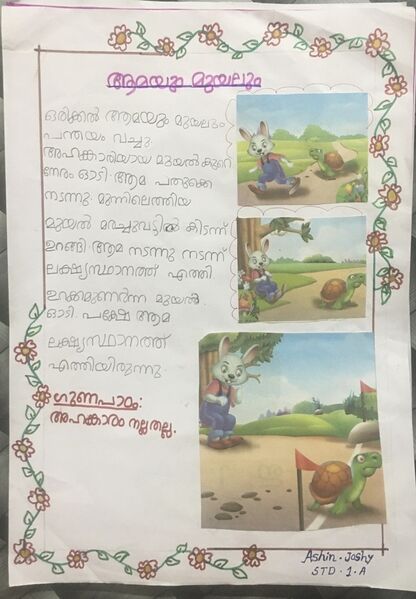 ആമയും മുയലും
ഒരിക്കൽ ആമയും മുയലും
പന്തയം വച്ചു.
അഹങ്കാരിയായ മുയൽ കുറെ
നേരം ഓടി. ആമ പതുക്കെ
നടന്നു. മുന്നിലെത്തിയ
മുയൽ മരച്ചുവട്ടിൽ കിടന്ന്
ഉറങ്ങി. ആമ നടന്നു നടന്ന്
ലക്ഷ്യസ്ഥാനത്ത് എത്തി
ഉറക്കമുണർന്ന മുയൽ
ഓടി. പക്ഷേ ആമ
ലക്ഷ്യസ്ഥാനത്ത്
എത്തിയിരുന്നു.
ഗുണപാഠം:
അഹങ്കാരം നല്ലതല്ല.
Ashin. Joshy
STD. 1. A